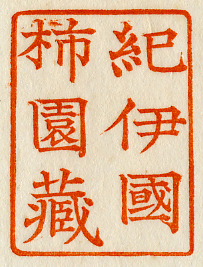 紀伊國
柿園藏